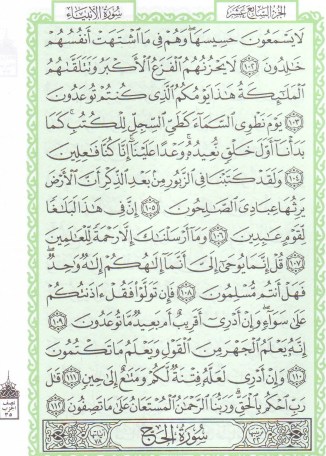 الجزء السابع عشر سورة الأنبياء
لَا يَسْمَعُونَ حَسِيسَهَا وَهُمْ فِي مَا اشْتَهَتْ أَنفُسُهُمْ
خَالِدُونَ ١٠٢ لَا يَحْزُنُهُمُ الْفَزَعُ الْأَكْبَرُ وَتَتَلَقَّاهُمُ
الْمَلَائِكَةُ هَذَا يَوْمُكُمُ الَّذِي كُنتُمْ تُوعَدُونَ
١٠٣ يَوْمَ نَطْوِي السَّمَاءَ كَطَيِّ السِّجِلِّ لِلْكُتُبِ كَمَا
بَدَأْنَا أَوَّلَ خَلْقٍ نُّعِيدُهُ وَعْدًا عَلَيْنَا إِنَّا كُنَّا فَاعِلِينَ
١٠٤ وَلَقَدْ كَتَبْنَا فِي الزَّبُورِ مِن بَعْدِ الذِّكْرِ أَنَّ الْأَرْضَ
يَرِثُهَا عِبَادِيَ الصَّالِحُونَ ١٠٥ إِنَّ فِي هَذَا لَبَلَاغًا
لِّقَوْمٍ عَابِدِينَ ١٠٦ وَمَا أَرْسَلْنَاكَ إِلَّا رَحْمَةً لِّلْعَالَمِينَ
١٠٧ قُلْ إِنَّمَا يُوحَى إِلَيَّ أَنَّمَا إِلَهُكُمْ إِلَهٌ وَاحِدٌ
فَهَلْ أَنتُم مُّسْلِمُونَ ١٠٨ فَإِن تَوَلَّوْا فَقُلْ آذَنتُكُمْ
عَلَى سَوَاءٍ وَإِنْ أَدْرِي أَقَرِيبٌ أَم بَعِيدٌ مَّا تُوعَدُونَ ١٠٩
إِنَّهُ يَعْلَمُ الْجَهْرَ مِنَ الْقَوْلِ وَيَعْلَمُ مَا تَكْتُمُونَ
١١٠ وَإِنْ أَدْرِي لَعَلَّهُ فِتْنَةٌ لَّكُمْ وَمَتَاعٌ إِلَى حِينٍ ١١١ قَالَ
رَبِّ احْكُم بِالْحَقِّ وَرَبُّنَا الرَّحْمَنُ الْمُسْتَعَانُ عَلَى مَا تَصِفُونَ ١١٢
نصف
الحزب
٣٥
سورة الحج